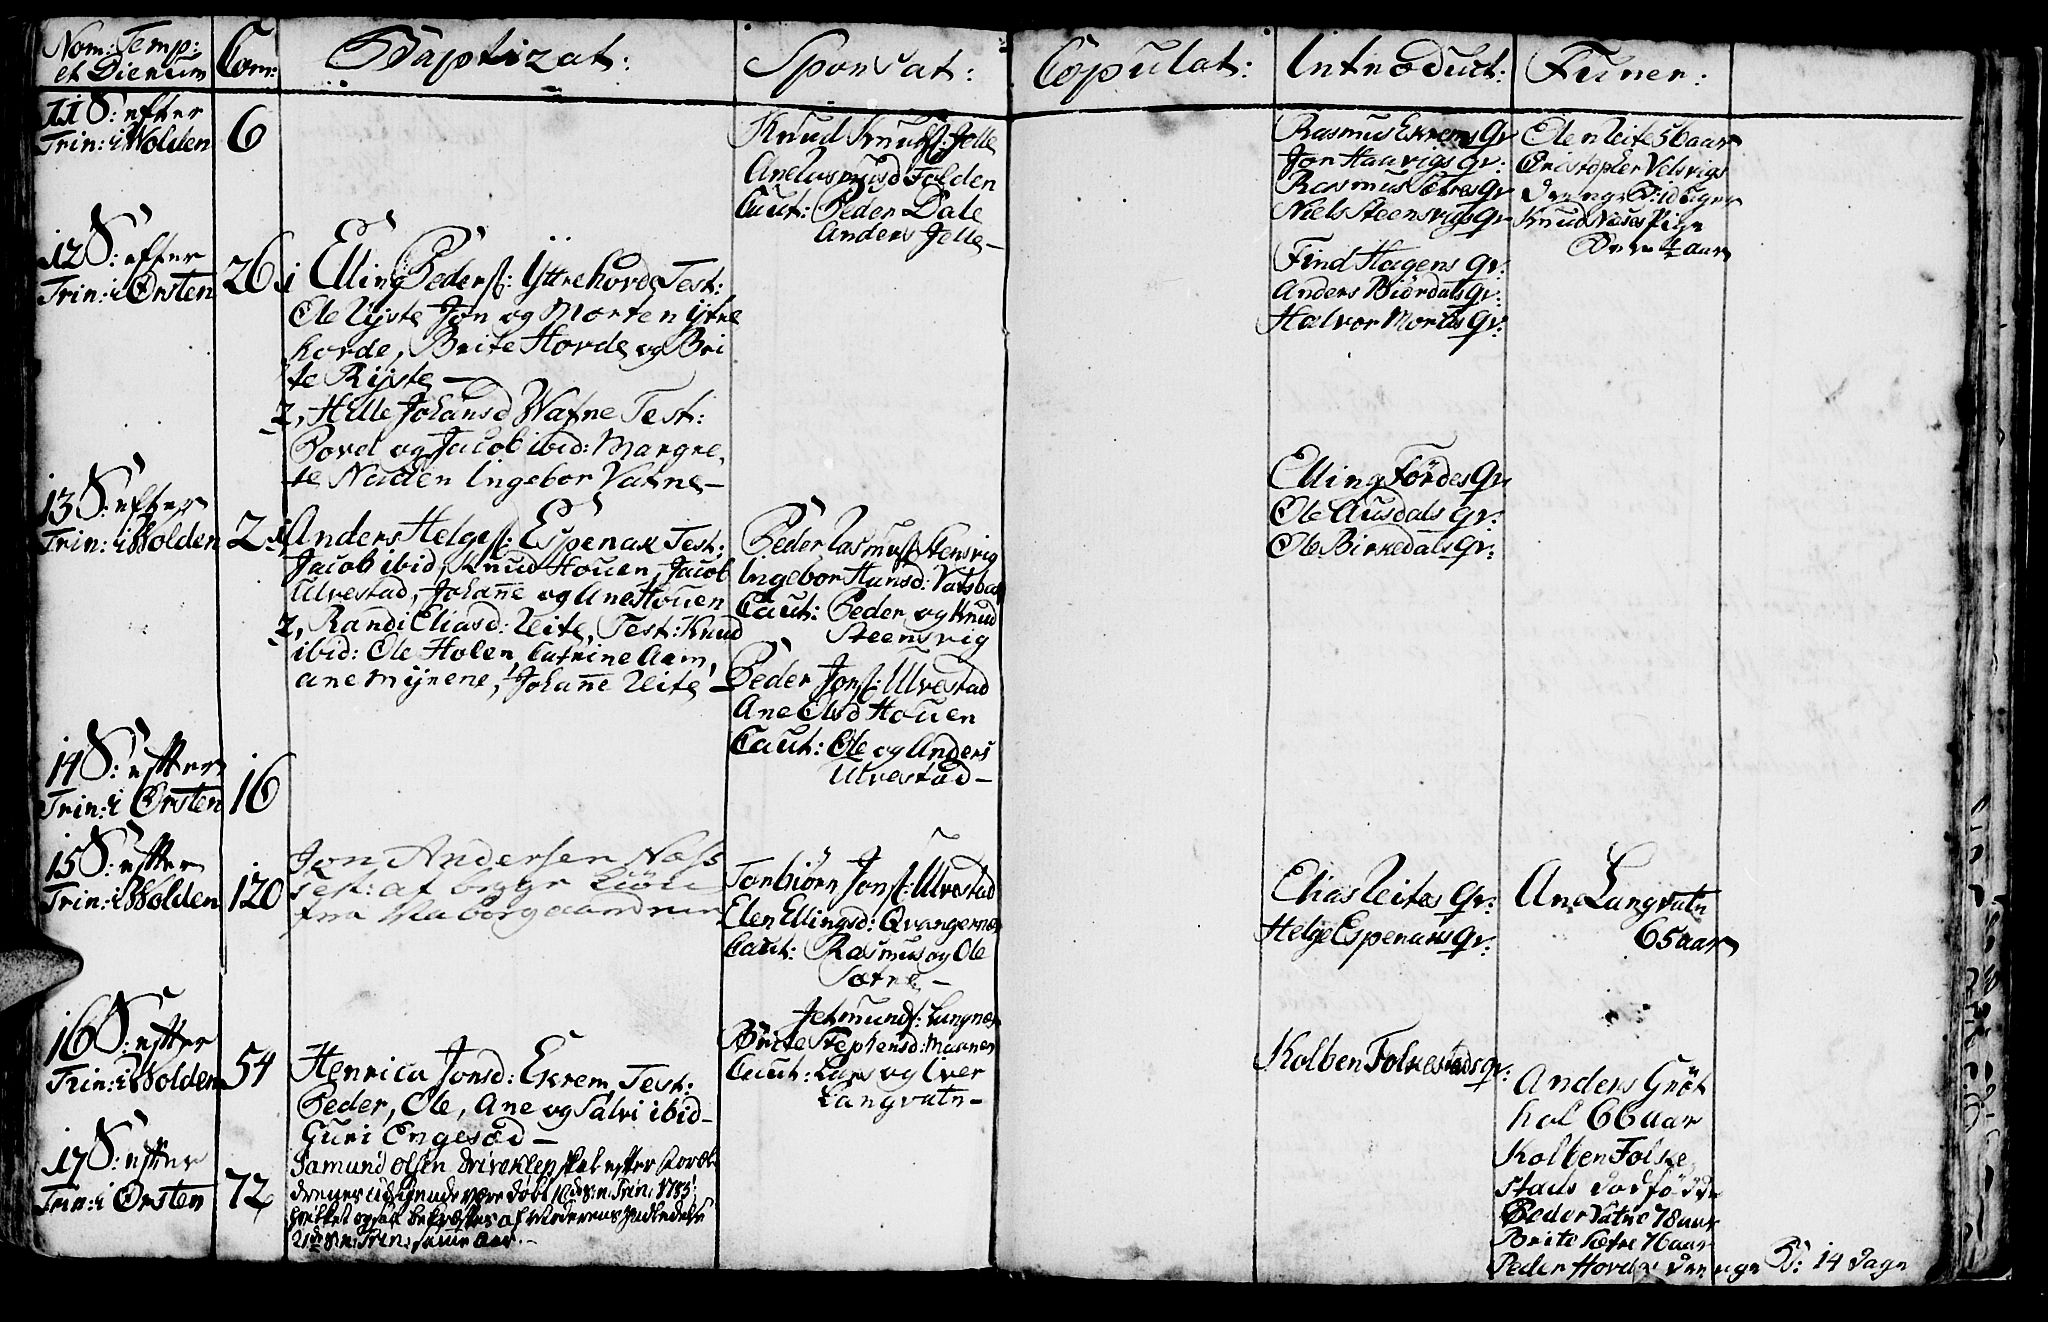 Nom: Temp:
et Dierum
Com:
Baptizat:
Sponsat:
Copulat:
Introduct:
Funer:
11 S: efter
Trin: i Wolden
6
Knud Knuds: Jelle
Ane Rasmusd Folden
Caut: Peder Dale
Anders Jelle
Rasmus Ekrems qv:
Jon Haavigs qv:
Rasmus Sætres qv
Niels Steensvigs qv
Elen Reite 56 aar
Christopher Velsvigs
drenge B: id 5 uger
Knud Næses Pige
Barn 4 aar
12 S: efter
Trin: i Ørsten
26
1 Elling Peders: Yttrehovde Test:
Ole Ryste Jon og Morten ytre
hovde, Brite Hovde og Bri
te Ryste
2, Hille Johansd Watne Test:
Povel og Jacob ibid: Margre
te Nuden Ingebor Vatne
Find Hagens qv:
Anders Biørdals qv:
Halvor Morks qv:
13 S: efter
Trin: i Wolden
2
1 Anders Helges: Espenak Test:
Jacob ibid, Knud Houen, Jacob
Ulvestad, Johañe og Ane Houen
2, Randi Eliasd: Reite, Test: Knud
ibid: Ole Holen, Catrine Aam,
Ane Myrene, Johañe Reite
Peder Rasmus Stensvig
Ingebor Hansd: Vatsbak
Caut: Peder og Knud
Steensvig
Peder Jons: Ulvestad
Ane Olsd Houen
Caut: Ole og Anders
Ulvestad
Elling Fördes qv
Ole Ausdals qv:
Ole Birkedals qv:
14 S: efter
Trin: i Ørsten
16
15 S: efter
Trin: i Wolden
120
Jon Andersen Næss
Test: af begge Kiön
fra Naboegaardene
Torbiörn Jons: Ulvestad
Elen Ellingsd: Qvangernes
Caut: Rasmus og Ole
Sætre
Elias Reites qv:
Helge Espenaks qv:
Ane Langvatn
65 aar
16 S: efter
Trin: i Wolden
54
Henrica Jonsd: Ekrem Test:
Peder, Ole, Ane og Salvi ibid
Guri Engesæd
Jetmunds: Langnæs
Brite Stephensd: Maanen
Caut: Lars og Iver
Langvatn
Kolben Folkestads qv:
Anders Gröt
hol 66 aar
17 S: efter
Trin: i Ørsten
72
Samund Olsen skal efter
være döbt 16de S: e: Trin: 1783
hvilket ogsaa bekræftes af Moderens Indledelse
21de S: e: Trin: samme Aar.
Kolben Folke
stads dødfödde
Peder Vatne 78 aar
Brite Sætre 76 aar
Peder Hovde drenge B: 14 Dage